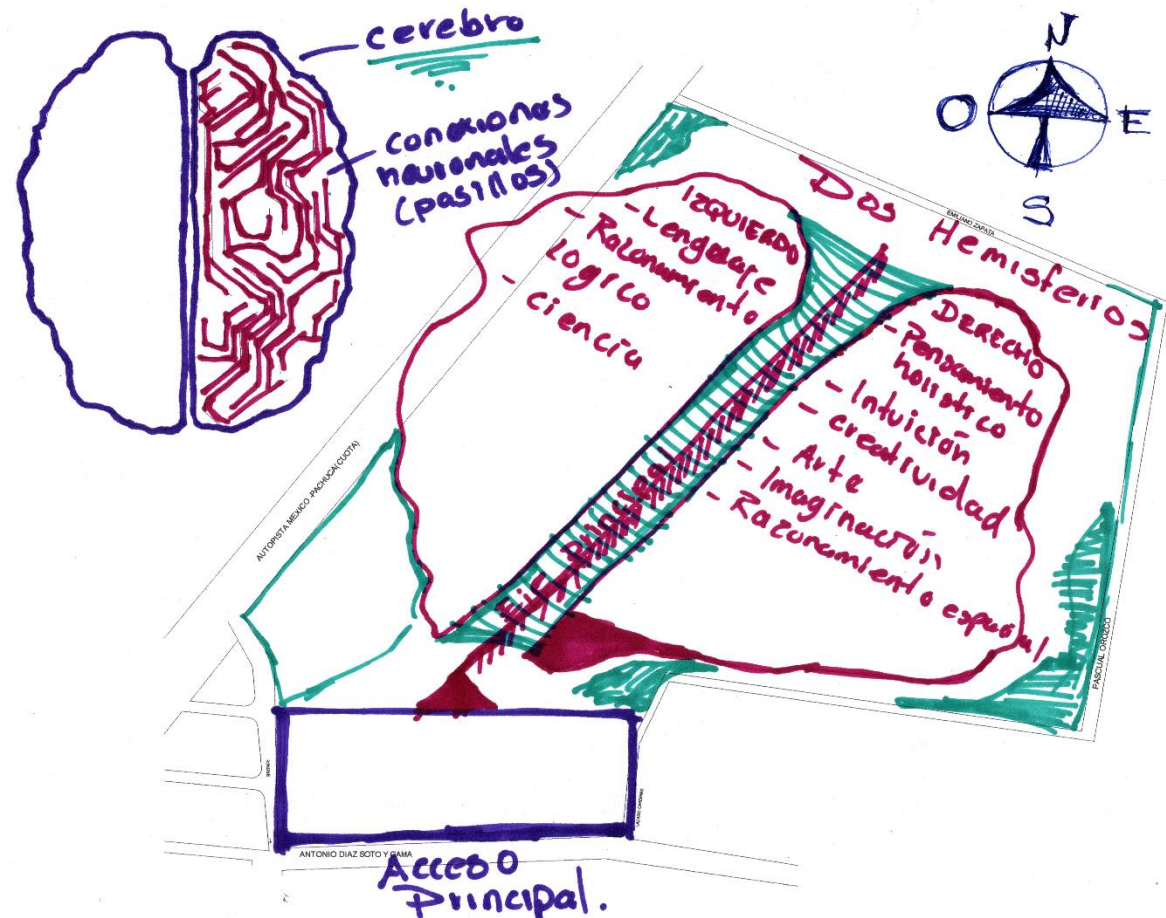 cerebro
conexiones
neuronales
(pasillos)
N
O
E
S
Dos Hemisferios
EMILIANO ZAPATA
IZQUIERDO
- Lenguaje
- Razonamiento
Logico
- ciencia
DERECHO
- Pensamiento
holistico
- Intuición
- creatividad
- Arte
- Imaginación
- Razonamiento espacial
Eje Principal
AUTOPISTA MEXICO -PACHUCA(CUOTA)
PASCUAL OROZCO
ANTONIO DIAZ SOTO Y GAMA
Acceso
Principal.